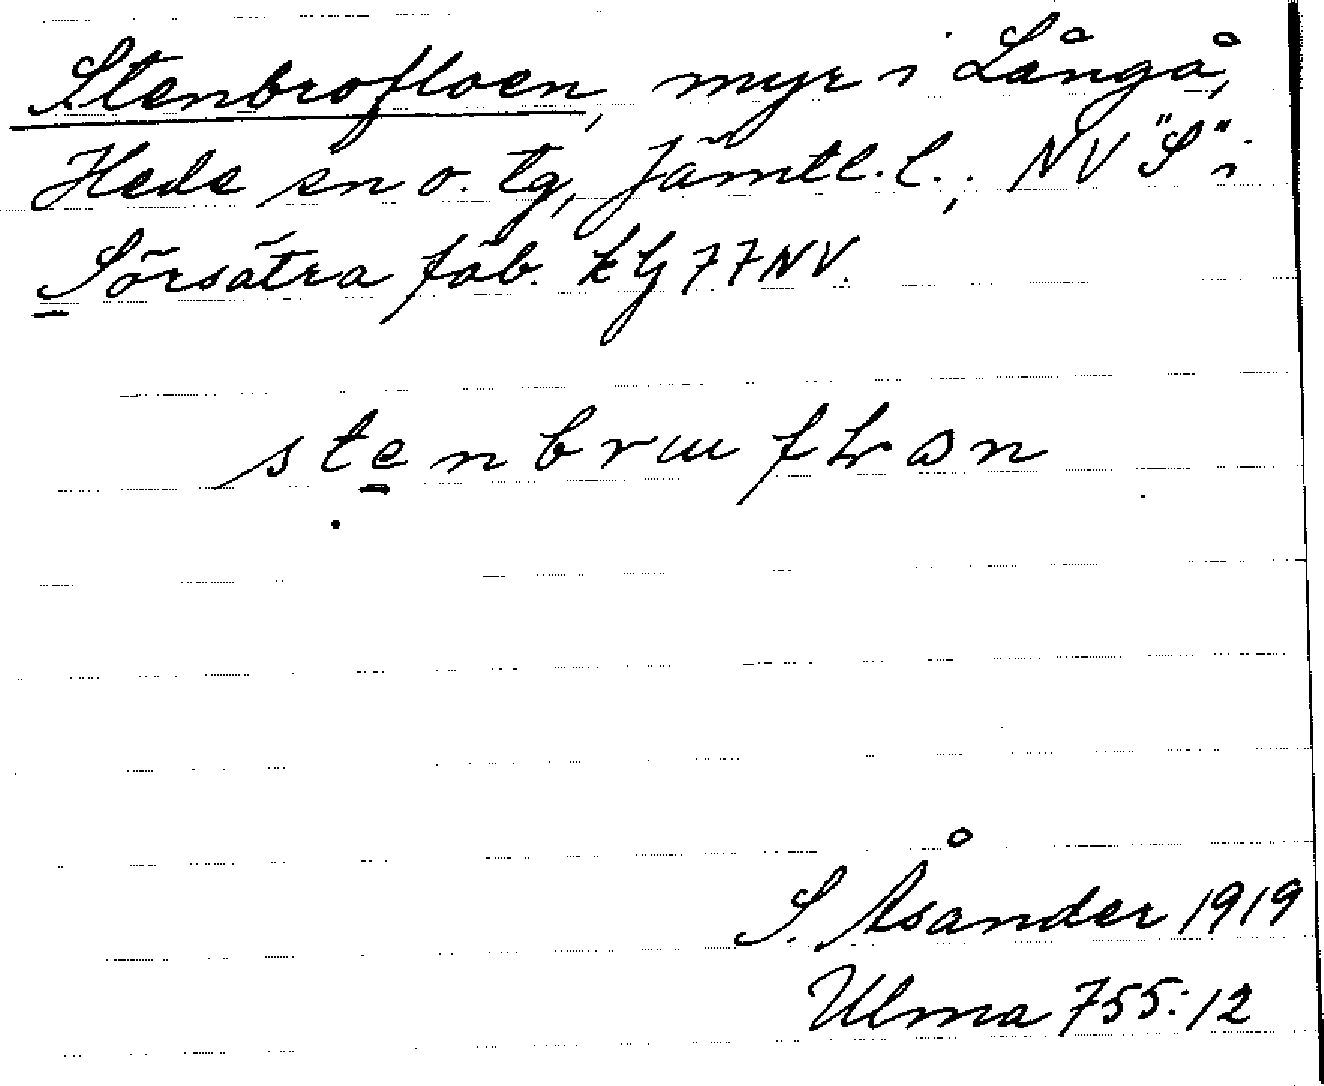 Stenbrofloen, myr i Långå,
Hede sn o. tg, Jämtl. l.; NV "S" i
Sörsätra fäb. kbl 77NV.
stenbrɯfLɷn
S. Åsander 1919
Ulma 755:12